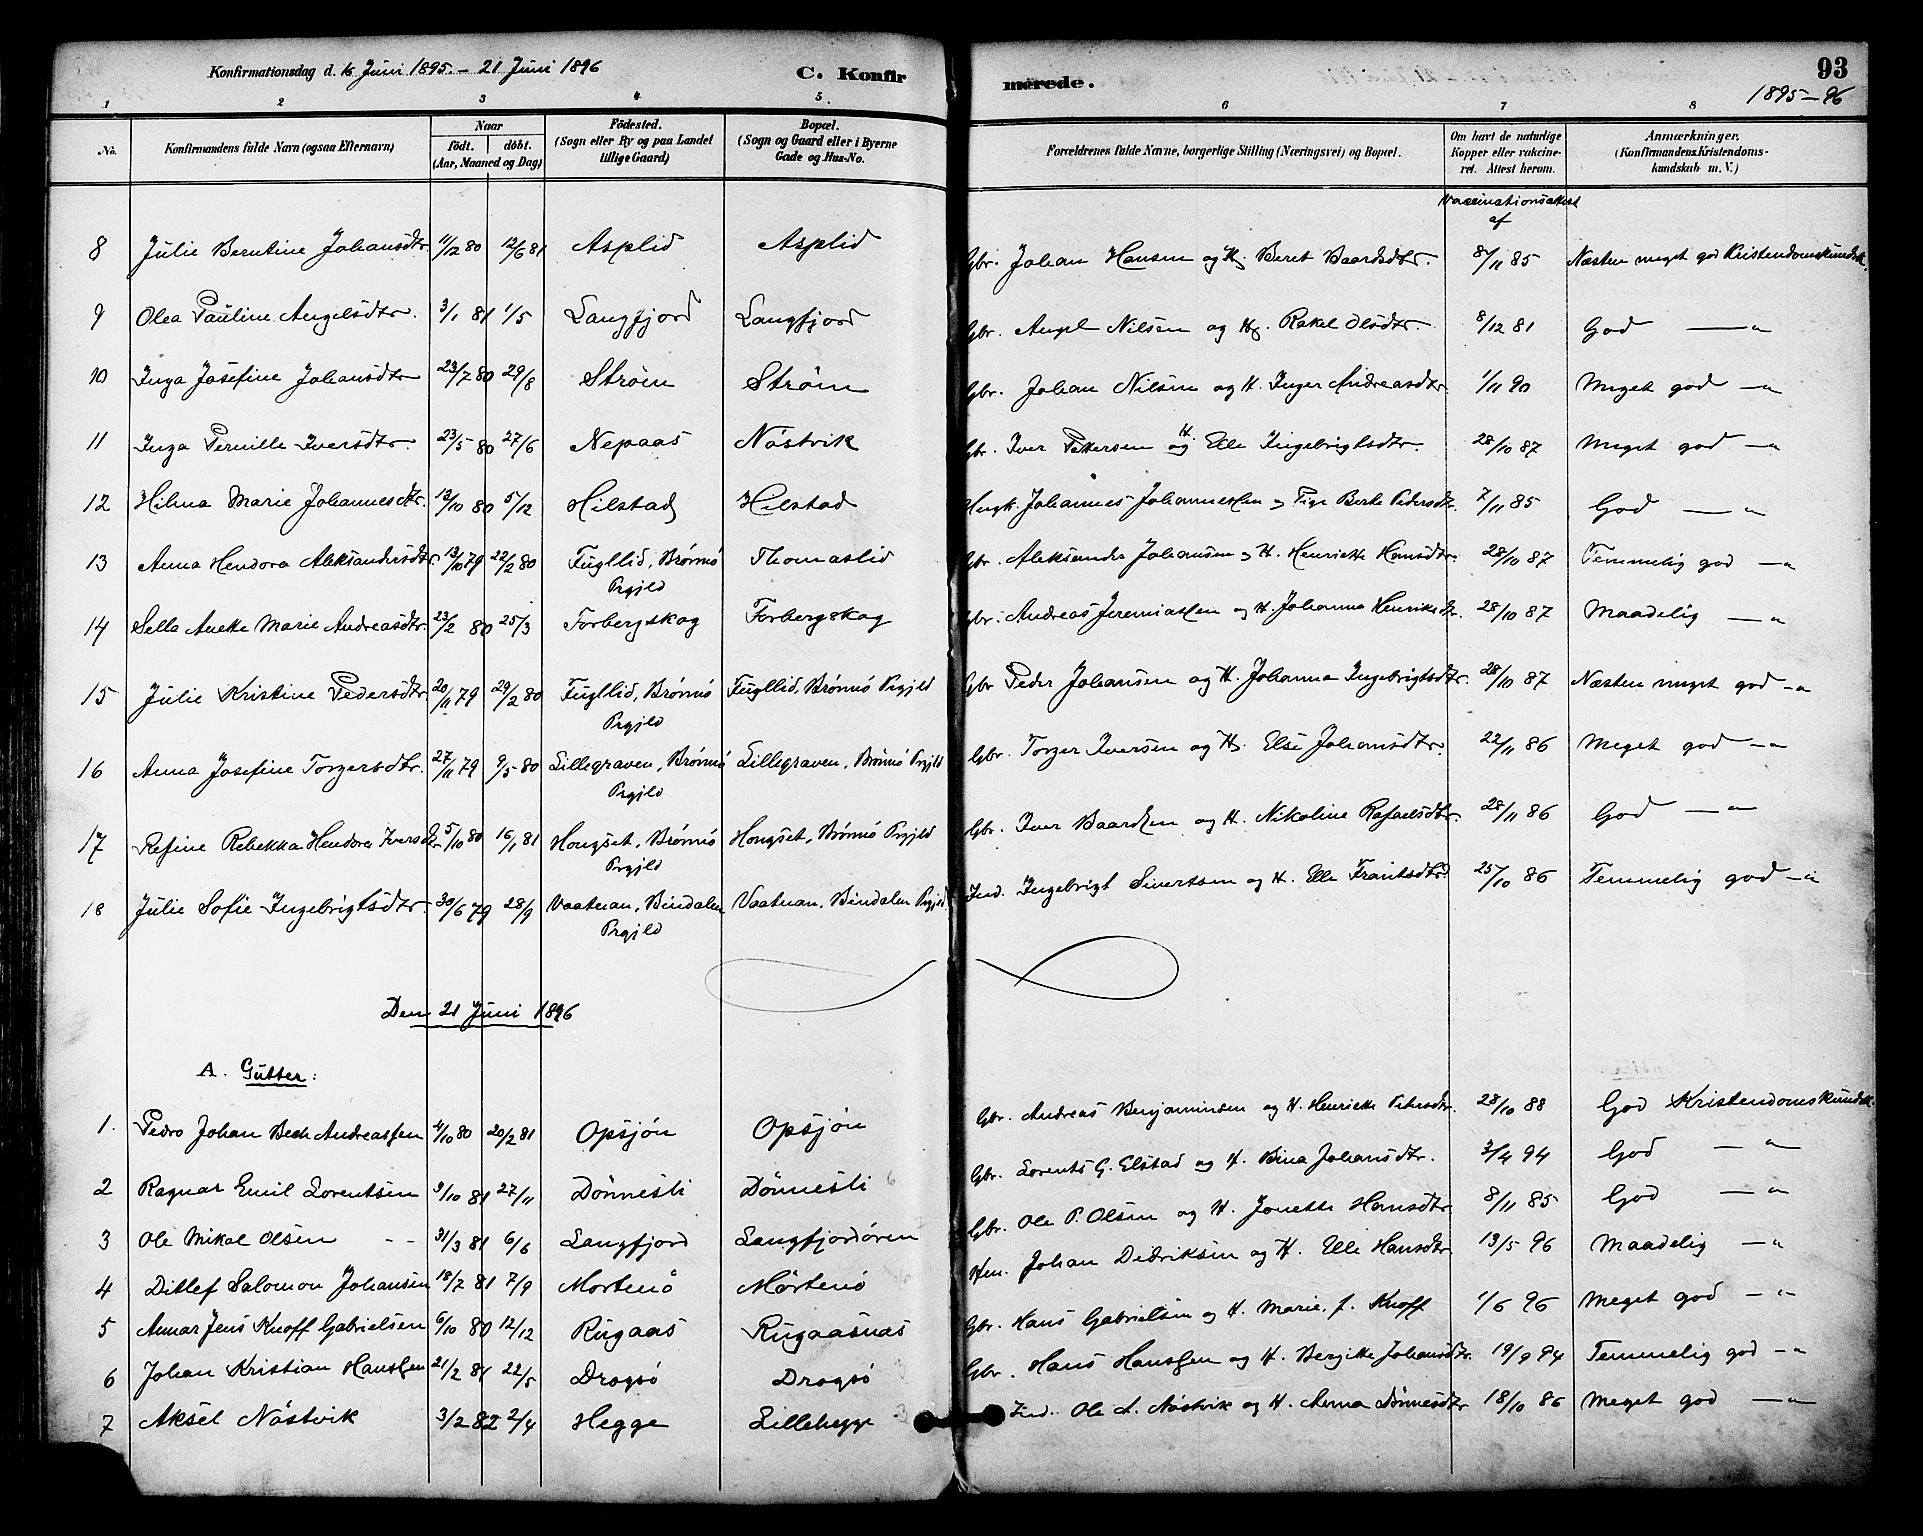 Konfirmationsdag d. 16 Juni 1895. – 21 Juni 1896 C. Konfirmerede. 93
1895–96
1 2 3 4 5. 6 7 8
No. Konfirmandens fulde Navn (ogsaa Efternavn) Naar Født. døbt. (Aar, Maaned og Dag) Fødested. (Sogn eller By og paa Landet tillige Gaard) Bopæl. (Sogn og Gaard eller i Byerne Gade og Hus-No. Forældrenes fulde Navne, borgerlige Stilling (Næringsvei) og Bopæl. Om havt de naturlige Kopper eller vakcineret. Attest herom. Anmærkninger. (Konfirmandens Kristendomskundskab m. V.)
Vaccinationsattest af
8 Julie Berntine Johansdtr. 11/2 80 12/6 81 Asplid Asplid Gbr. Johan Hansen og H. Beret Baardsdtr. 8/11 85 Næsten meget god Kristendomskundsk.
9 Olea Pauline Angelsdtr. 3/1 81 1/5 Langfjord Langfjord Gbr. Angel Nilsen og H. Rakel Olsdtr. 8/12 81 God — "
10 Inga Josefine Johansdtr 23/7 80 29/8 Strøm Strøm Gbr. Johan Nilsen og H. Inger Andreasdtr. 1/11 90 Meget god — "
11 Inga Pernille Iversdtr. 23/5 80 27/6 Nepaas Nøstvik Gbr. Iver Pettersen og H. Elle Ingebrigtsdtr. 28/10 87 Meget god — "
12 Hilma Marie Johannesdtr. 13/10 80 5/12 Hilstad Hilstad Johannes Johannessen Berte Pedersdtr. 7/11 85 God — "
13 Anna Hendora Aleksandersdtr. 13/10 79 22/2 80 Fugllid, Brønnø Prgjld Thomaslid Gbr. Aleksander Johansen og H. Henriette Hansdtr. 28/10 87 Temmelig god — "
14 Sella Anette Marie Andreasdtr. 23/2 80 25/3 Forbergskog Forbergskog Gbr. Andreas Jeremiassen og H. Johanna Henriksdtr. 28/10 87 Maadelig — "
15 Julie Kristine Pedersdtr. 20/11 79 29/2 80 Fugllid, Brønnø Prgjld Fugllid, Brønnø Prgjld Gbr Peder Johansen og H. Johanna Ingebrigtsdtr. 28/10 87 Næsten meget god — "
16 Anna Josefine Torgersdtr. 27/11 79 9/5 80 Lillegraven, Brønnø Prgjld Lillegraven, Brønnø Prgjld Gbr. Torger Iversen og H. Else Johansdtr. 22/11 86 Meget god — "
17 Refine Rebekka Hendora Iversdtr. 5/10 80 16/1 81 Hongset, Brønnø Prgjld Hongset, Brønnø Prgjld Gbr. Iver Baardsen og H. Nikoline Rafaelsdtr. 28/11 86 God — "
18 Julie Sofie Ingebrigtsdtr. 30/6 79 28/9 Vaatvan, Bindalen Prgjld Vaatvan, Bindalen Prgjld. Ind. Ingebrigt Sivertsen og H. Elle Frantsdtr. 25/10 86 Temmelig god — "
Den 21 Juni 1896
A. Gutter:
1. Pedro Johan Bech Andreassen 4/10 80 20/2 81 Opsjøn Opsjøn Gbr. Andreas Benjaminsen og H. Henriette Petersdtr. 28/10 88 God Kristendomskundsk.
2 Ragnar Emil Lorentsen 9/10 81 27/11 Dønnesli Dønnesli Gbr. Lorents G. Elstad og H. Bina Johansdtr. 3/4 94 God — "
3 Ole Mikal Olsen - - 31/3 81 6/6 Langfjord Langfjordøren Gbr. Ole P. Olsen og H. Jonette Hansdtr. 8/11 85 God — "
4 Ditlef Salomon Johansen 18/7 81 7/9 Mortenø Mortenø Johan Didriksen og H. Elle Hansdtr. 13/5 96 Maadelig — "
5 Annar Jens Knoff Gabrielsen 6/10 80 12/12 Rugaas Rugaasnas Gbr. Hans Gabrielsen og H. Marie, f. Knoff 1/6 96 Meget god — "
6 Johan Kristian Hanssen 21/2 81 22/5 Dragsø Dragsø Gbr. Hans Hanssen og H. Bergitte Johansdtr. 19/9 94 Temmelig god — "
7 Aksel Nøstvik 3/2 82 2/4 Hegge Lillehegge Ind. Ole A. Nøstvik og H. Anna Dønnesdtr 18/10 86 Meget god — "